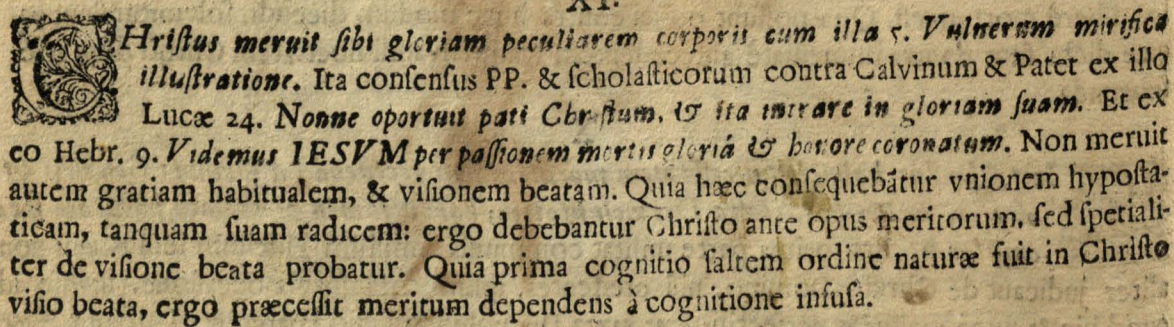 XI.
CHristus meruit sibi gloriam peculiarem corporis cum illa 5. Vulnerum mirifica
illustratione. Ita consensus PP. & scholasticorum contra Calvinum & Patet ex illo
Lucæ 24. Nonne oportuit pati Christum, & ita intrare in gloriam suam. Et ex
eo Hebr. 9. Videmus IESVM per passionem mortis gloriâ & honore coronatum. Non meruit
autem gratiam habitualem, & visionem beatam. Quia hæc consequebãtur vnionem hyposta-
ticam, tanquam suam radicem: ergo debebantur Christo ante opus meritorum. sed spetiali-
ter de visione beata probatur. Quia prima cognitio saltem ordine naturæ fuit in Christo
visio beata, ergo præcessit meritum dependens à cognitione infusa.